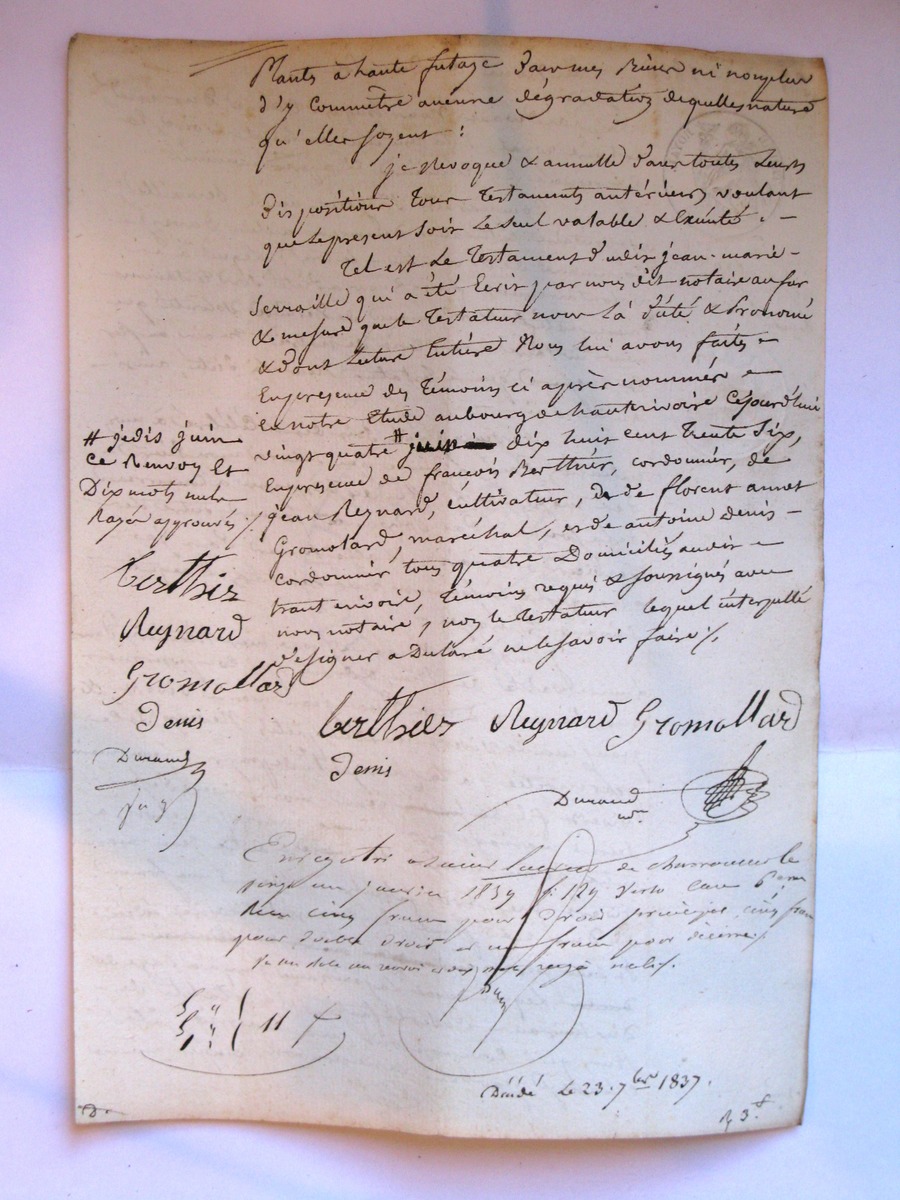 Plants à haute futaye dans mes Biens ni non plus
d'y Commettre aucune dégradation de quelles nature
qu'elles soyent :
je Revoque & annulle dans toutes Leurs
dispositions Tous Testaments antérieurs voulant
que Le present soit Le seul valable & Exécuté . -
Tel est Le Testament dudit jean-marie -
Serraille qui a été Ecrit par nous dit notaire au fur
& mesure que le Testateur nous L'à dicté & Prononcé
& dont Lecture Entiere Nous lui avons faites
En presence des Témoins ci après nommés
En notre Etude au bourg de hauterivoire Cejourd'hui
vingt quatre # dix huit cent Trente Six,
En presence de françois Berthier, cordonnier, de
jean Reynard, cultivateur, de florent
Gromolard, maréchal, et de antoine denis -
cordonnier tous quatre Domiciliés audit
haut rivoire, Témoins requis & soussignés avec
nous notaire, non le Testateur lequel interpellé
de signer a Declaré ne le savoir faire ./.
# je dis juin
ce Renvoy et
Dix mots nuls
Rayés approuvés ./.
Berthier
Reynard
Gromollard
Denis
Durand
Berthier Reynard Gromollard
Denis
Durand
nre
Enregistré à de le
vingt un janvier f. 129 verso Case
Reçu cinq francs pour droit cinq francs
pour double droit et un franc pour décime ./.
11
Décédé Le 23. 7bre 1837.
3